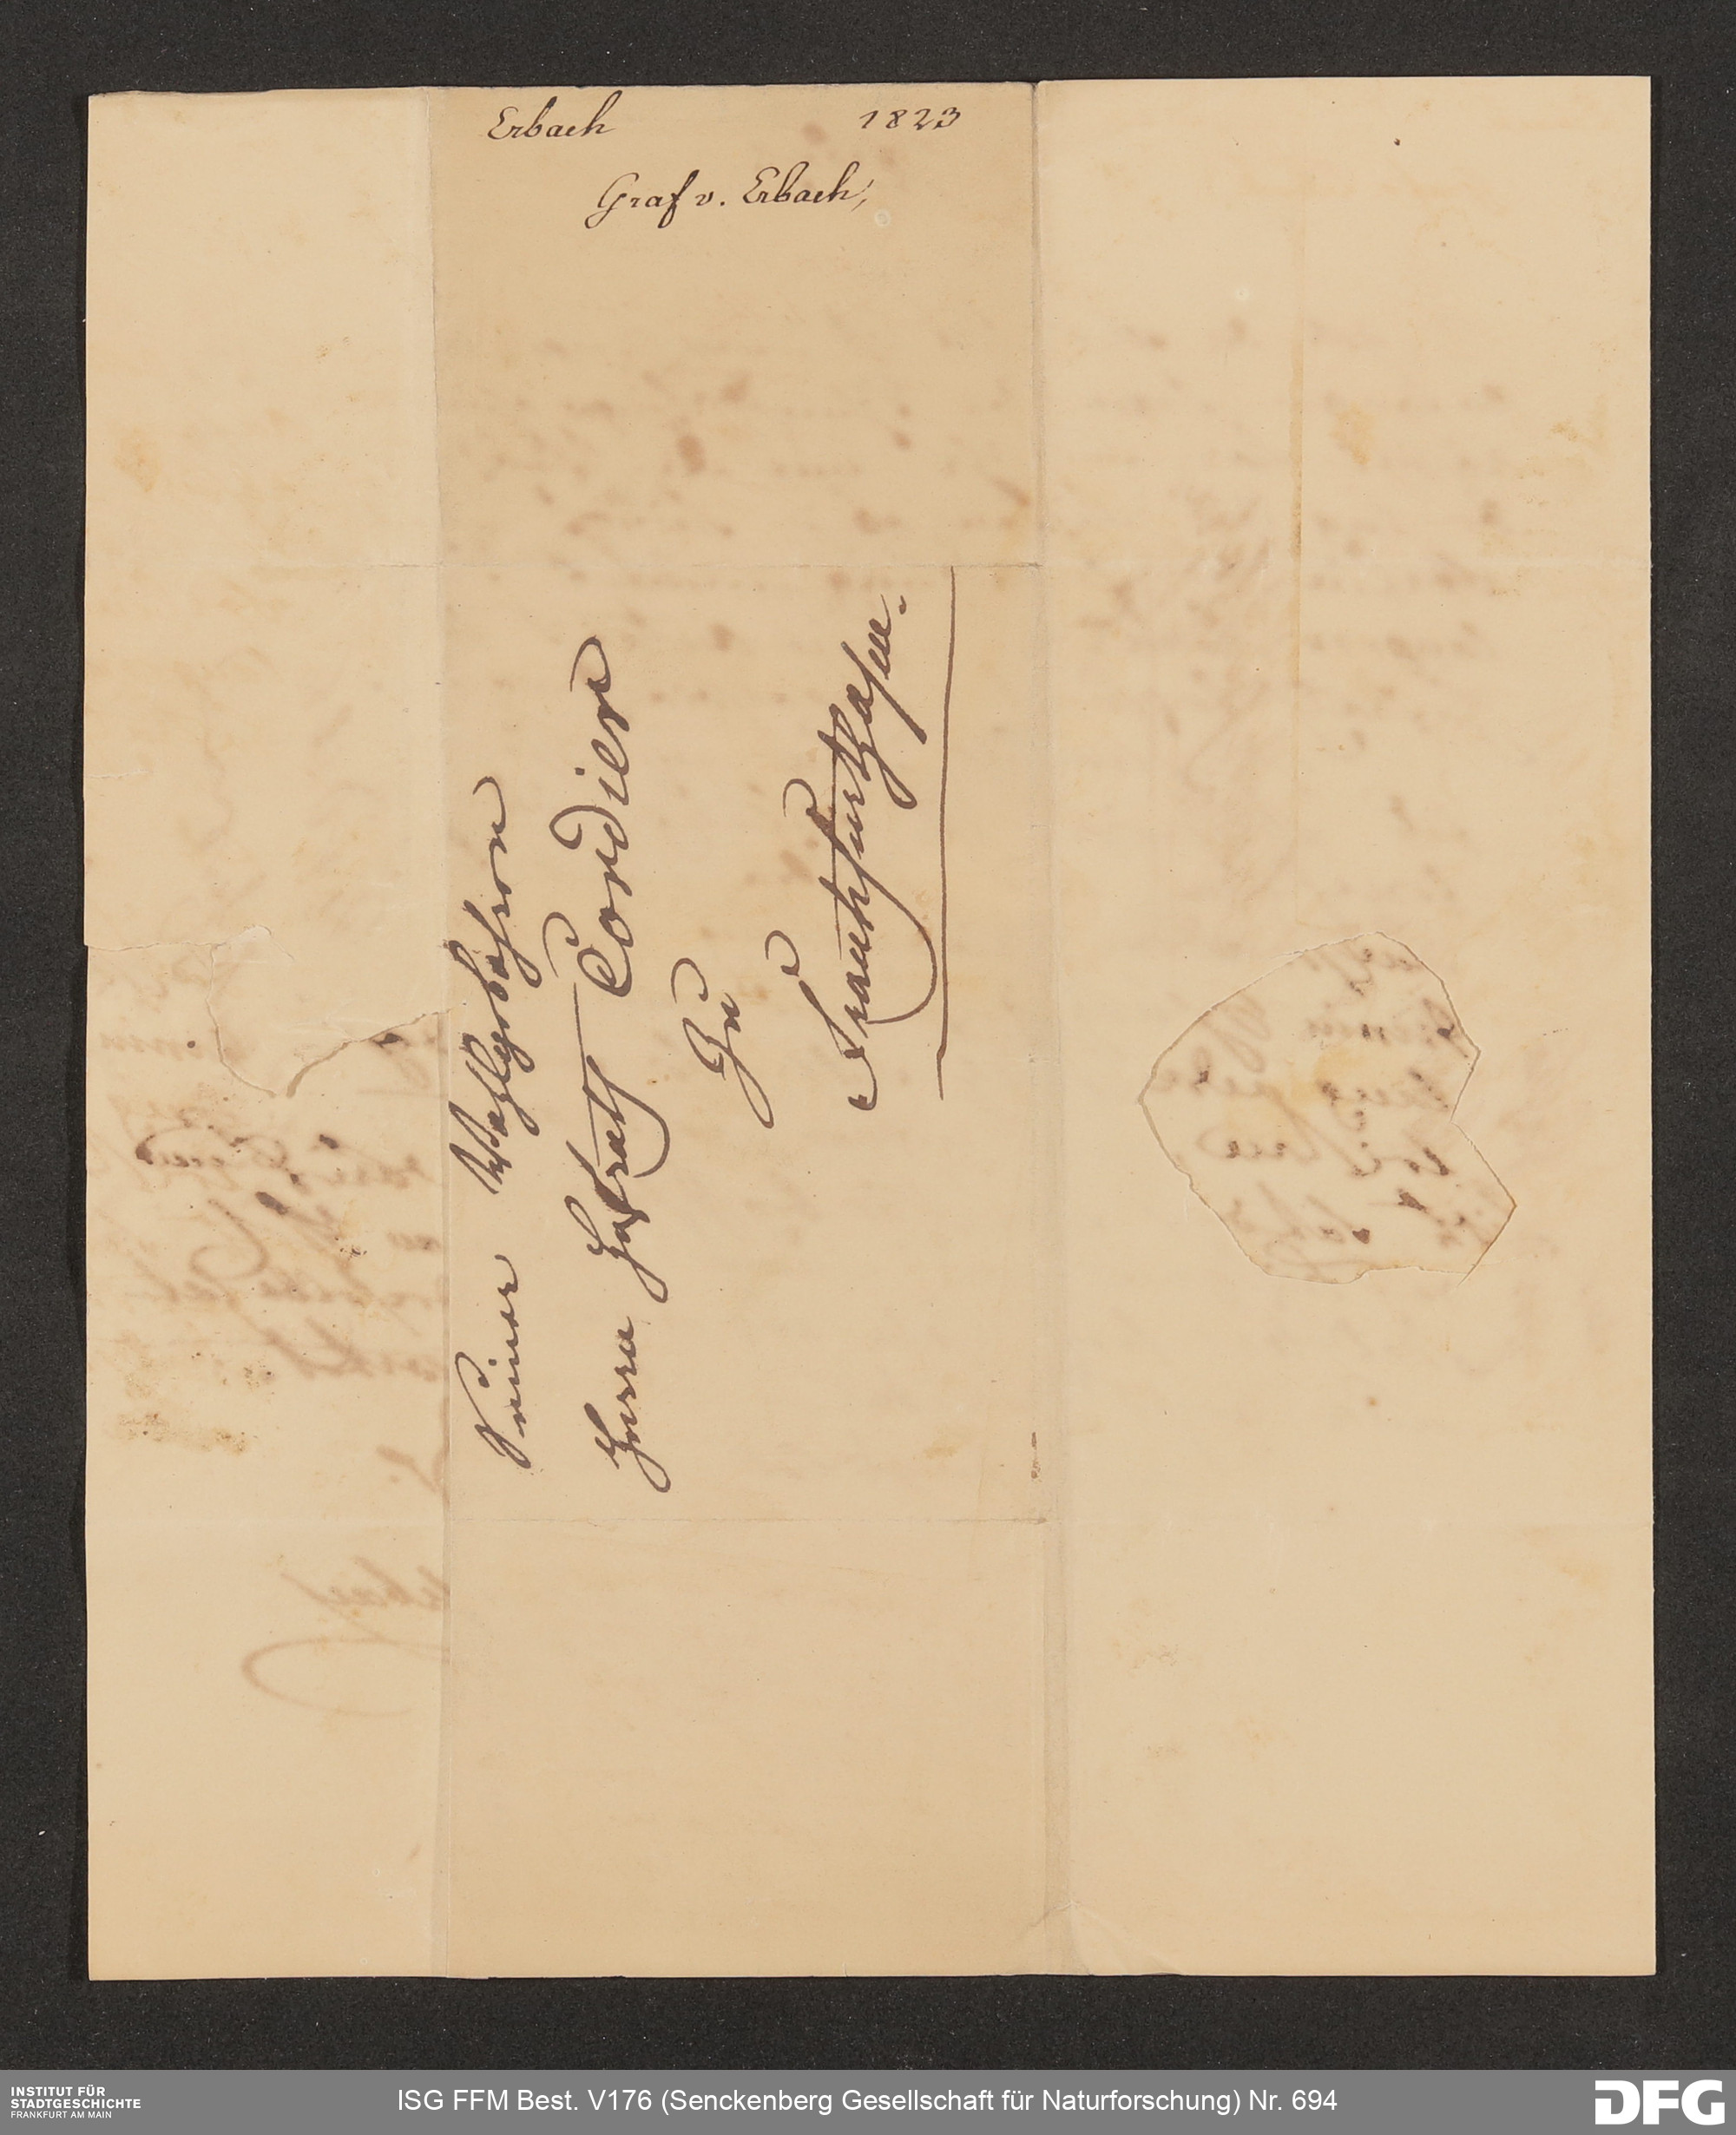 Erbach 1823
Graf v. Erbach,
Seiner Wohlgebohren
Herrn Hofrath Cordier
Zu
INSTITUT FÜR
STADTGESCHICHTE
FRANKFURT AM MAIN
ISG FFM Best. V176 (Senckenberg Gesellschaft für Naturforschung) Nr. 694
DFG